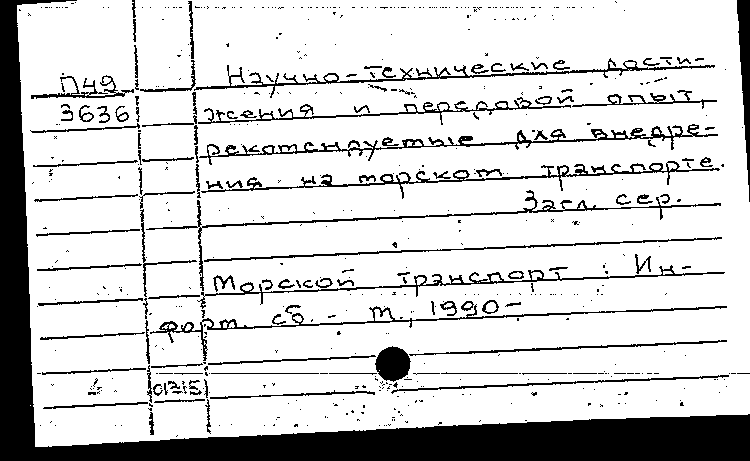 П49
3636
Научно-технические дости-
жения и передовой опыт,
рекомендуемые для внедре-
ния на морском транспорте.
Загл. сер.
Морской транспорт : Ин-
форм. сб. - М., 1990-